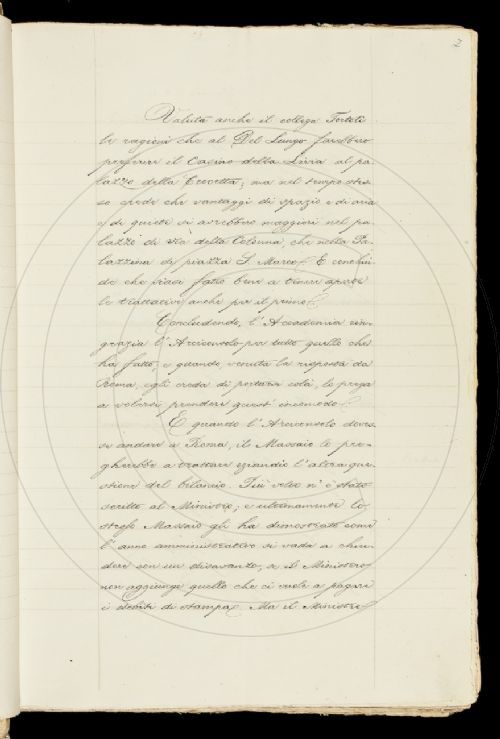 2
Valuta anche il collega Tortoli
le ragioni che al Del Lungo farebbero
preferire il Casino della Livia al pa-
lazzo della Crocetta; ma nel tempo stes-
so crede che vantaggi di spazio e di aria
e di quiete si avrebbero maggiori nel pa-
lazzo di via della Colonna, che nella Pa-
lazzina di piazza S. Marco. E conchiu-
de che siasi fatto bene a tenere aperte
le trattative anche per il primo.
Concludendo, l'Accademia rin-
grazia l'Arciconsolo per tutto quello che
ha fatto; e quando, venuta la risposta da
Roma, egli creda di portarsi colà, lo prega
a volersi prendere quest'incomodo.
E quando l'Arciconsolo doves-
se andare a Roma, il Massaio lo pre-
gherebbe a trattare eziandio l'altra que-
stione del bilancio. Più volte n'è stato
scritto al Ministro; e ultimamente lo
stesso Massaio gli ha dimostrato come
l'anno amministrativo si vada a chiu-
dere con un disavanzo, se il Ministero
non aggiunge quello che ci vuole a pagare
i debiti di stampa. Ma il Ministro